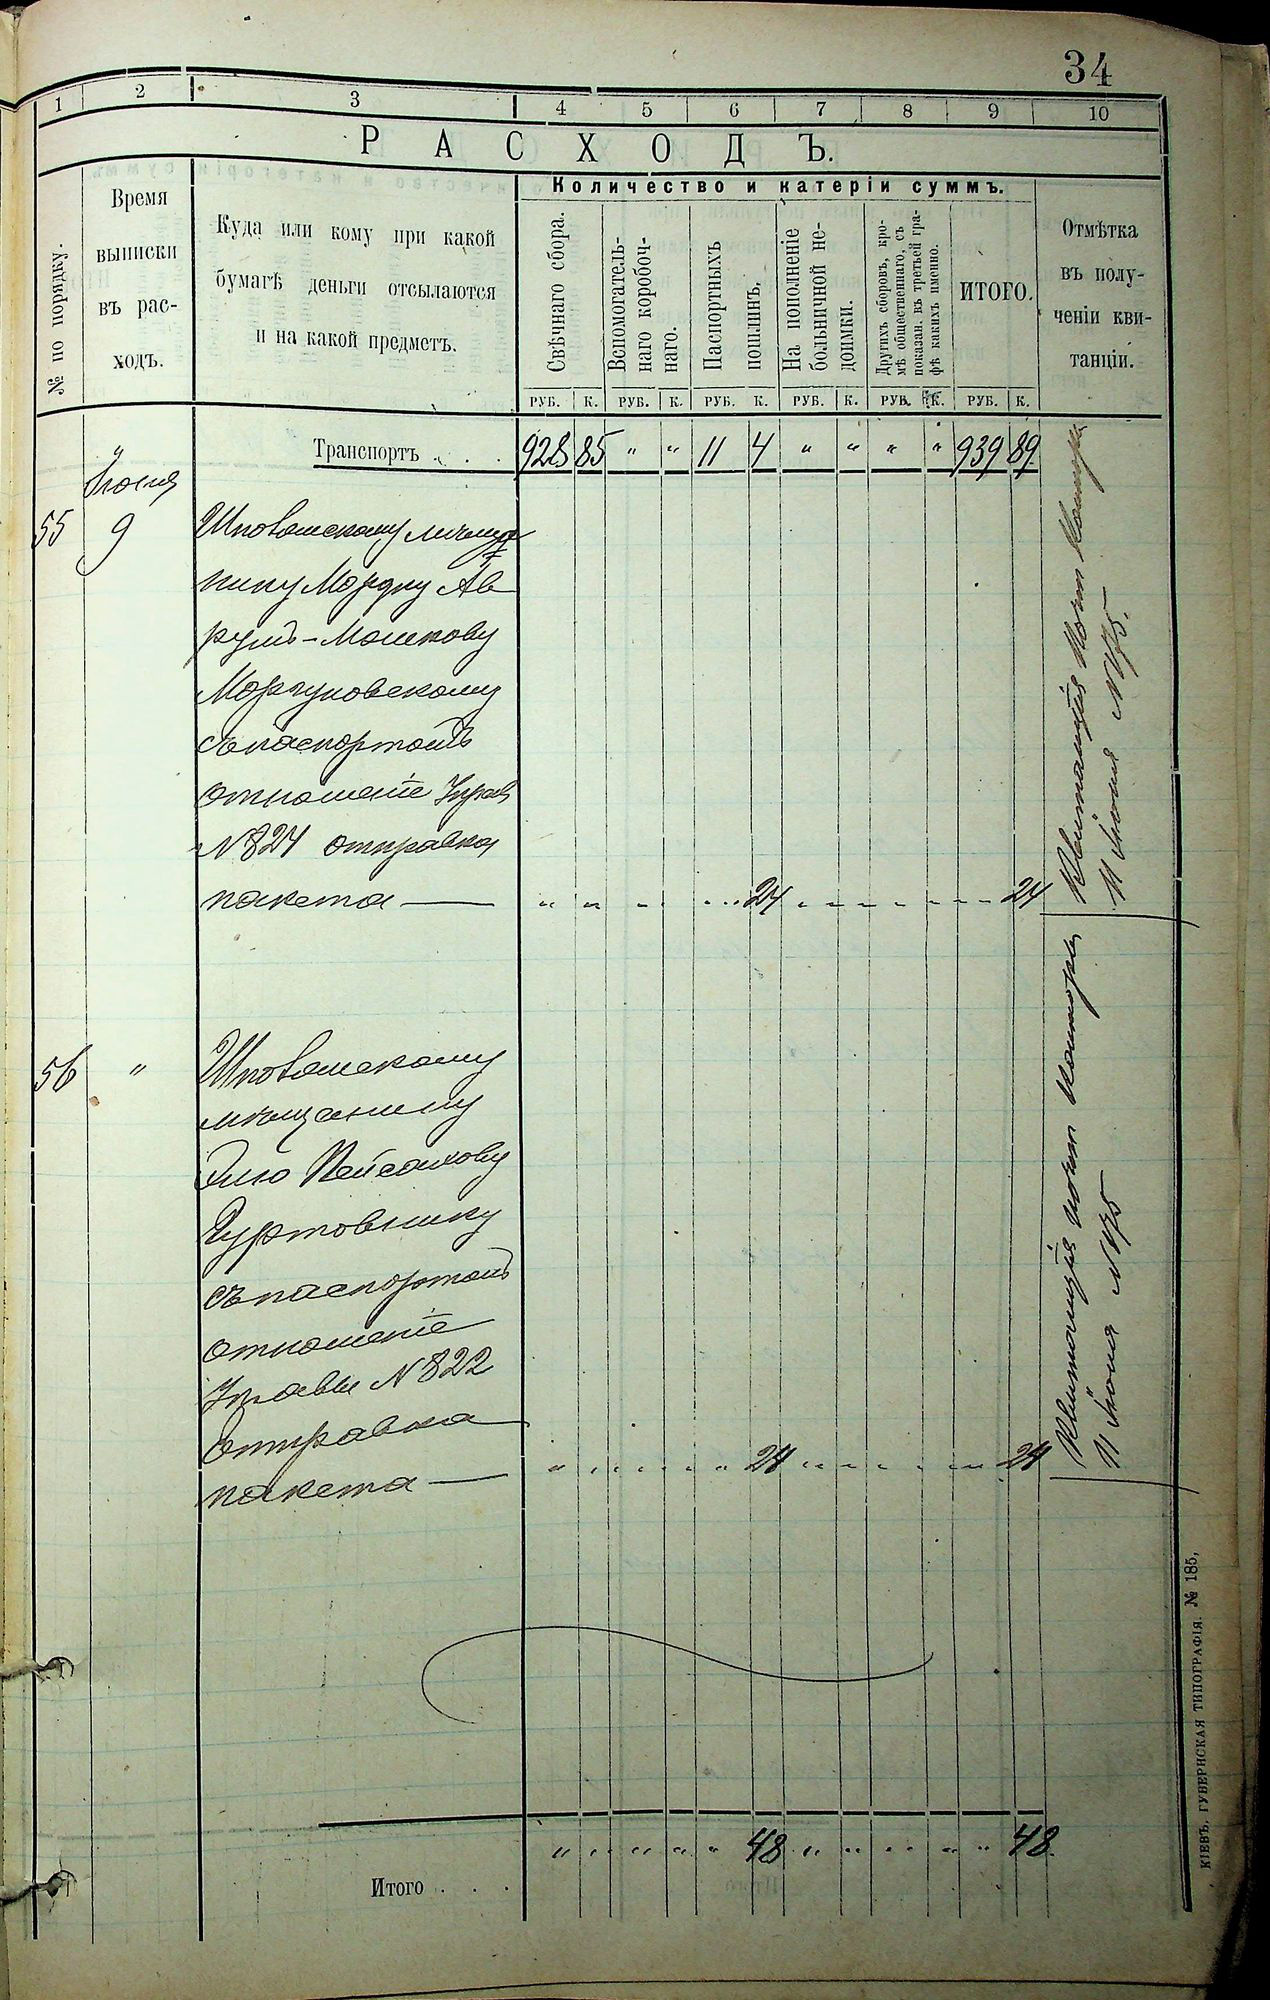 34
1 2 3 4 5 6 7 8 9 10
РАСХОДЪ.
№ по порядку.
Время
выписки
въ рас-
ходъ.
Куда или кому при какой
бумагѣ деньги отсылаются
и на какой предметъ.
Количество и катерiи суммъ.
Свѣчнаго сбора.
Вспомогатель-
наго коробоч-
наго.
Паспортныхъ
пошлинъ.
На пополненiе
больничной не-
доимки.
Другихъ сборовъ, кро-
мѣ общественнаго, съ
показан. въ третьей гра-
фѣ какихъ именно.
ИТОГО.
Отмѣтка
въ полу-
ченiи кви-
танцiи.
РУБ. К. РУБ. К. РУБ. К. РУБ. К. РУБ. К. РУБ. К.
Транспортъ . . . 928 85 " " 11 4 " " " " 939 89
Iюня
55 9 Шполянскому мѣща
нину Мордку Ав
румъ-Мошкову
Моргуновскому
съ паспортомъ
отношенiе Управ
№ 824 отправка
пакета — 24 24
Квитанцiя Почт Конторы
11 Iюня № 175.
56 " Шполянскому
мѣщанину
Элю Пейсахову
Гуртовнику
съ паспортомъ
отношенiе
Управы № 822
отправка
пакета — 24 24
Квитанцiя почт конторы
11 Iюня № 175
Итого . . . 48 48.
КIЕВЪ, ГУБЕРНСКАЯ ТИПОГРАФIЯ. № 185,